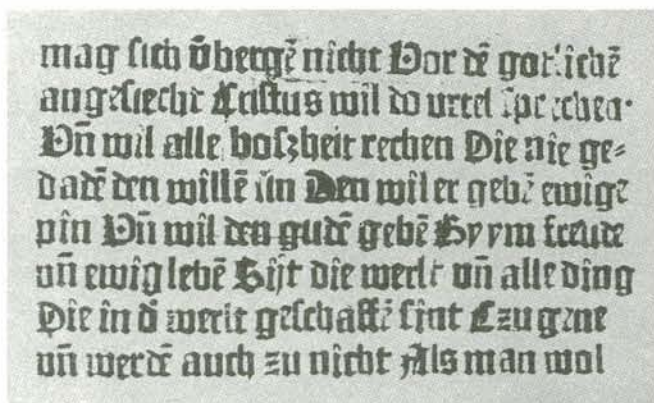 mag sich ṽbergẽ nicht Vor dẽ gotlichẽ
angesiecht Cristus wil do urtel sprechen·
Vñ wil alle boszheit rechen Die nie ge⸗
dadẽ den willẽ sin Den wil er gebẽ ewigẽ
pin Vñ wil den gudẽ gebẽ By ym freude
uñ ewig lebẽ Sijt die werlt uñ alle ding
Die in d̃ werlt geschaffẽ sint Czu gene
uñ werdẽ auch zu nicht Als man wol